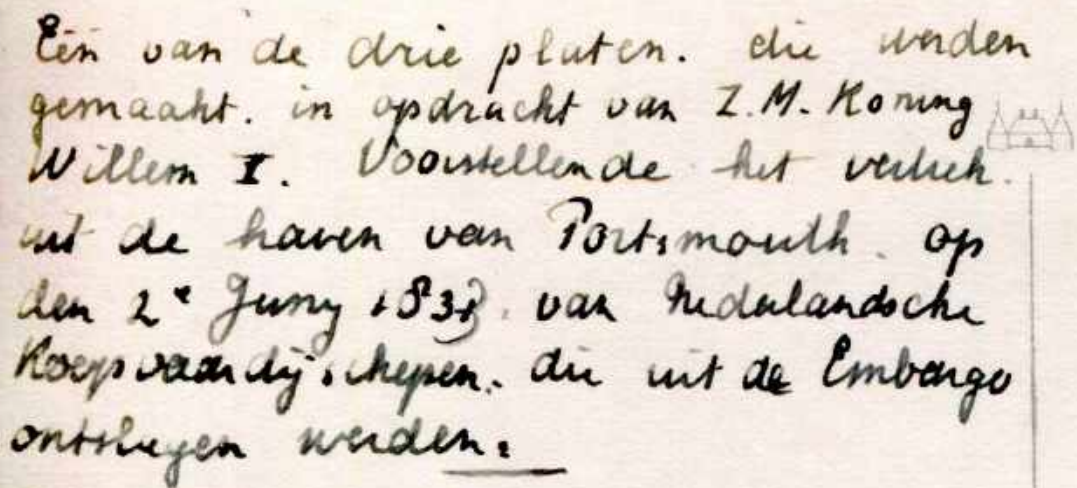 Eén van de drie platen. die werden
gemaakt. in opdracht van Z.M. Koning
Willem I. Voorstellende het vertrek.
uit de haven van Portsmouth. op
den 2e Juny 1833. van Nederlandsche
Koopvaardijschepen. die uit de Embargo
ontslagen werden.